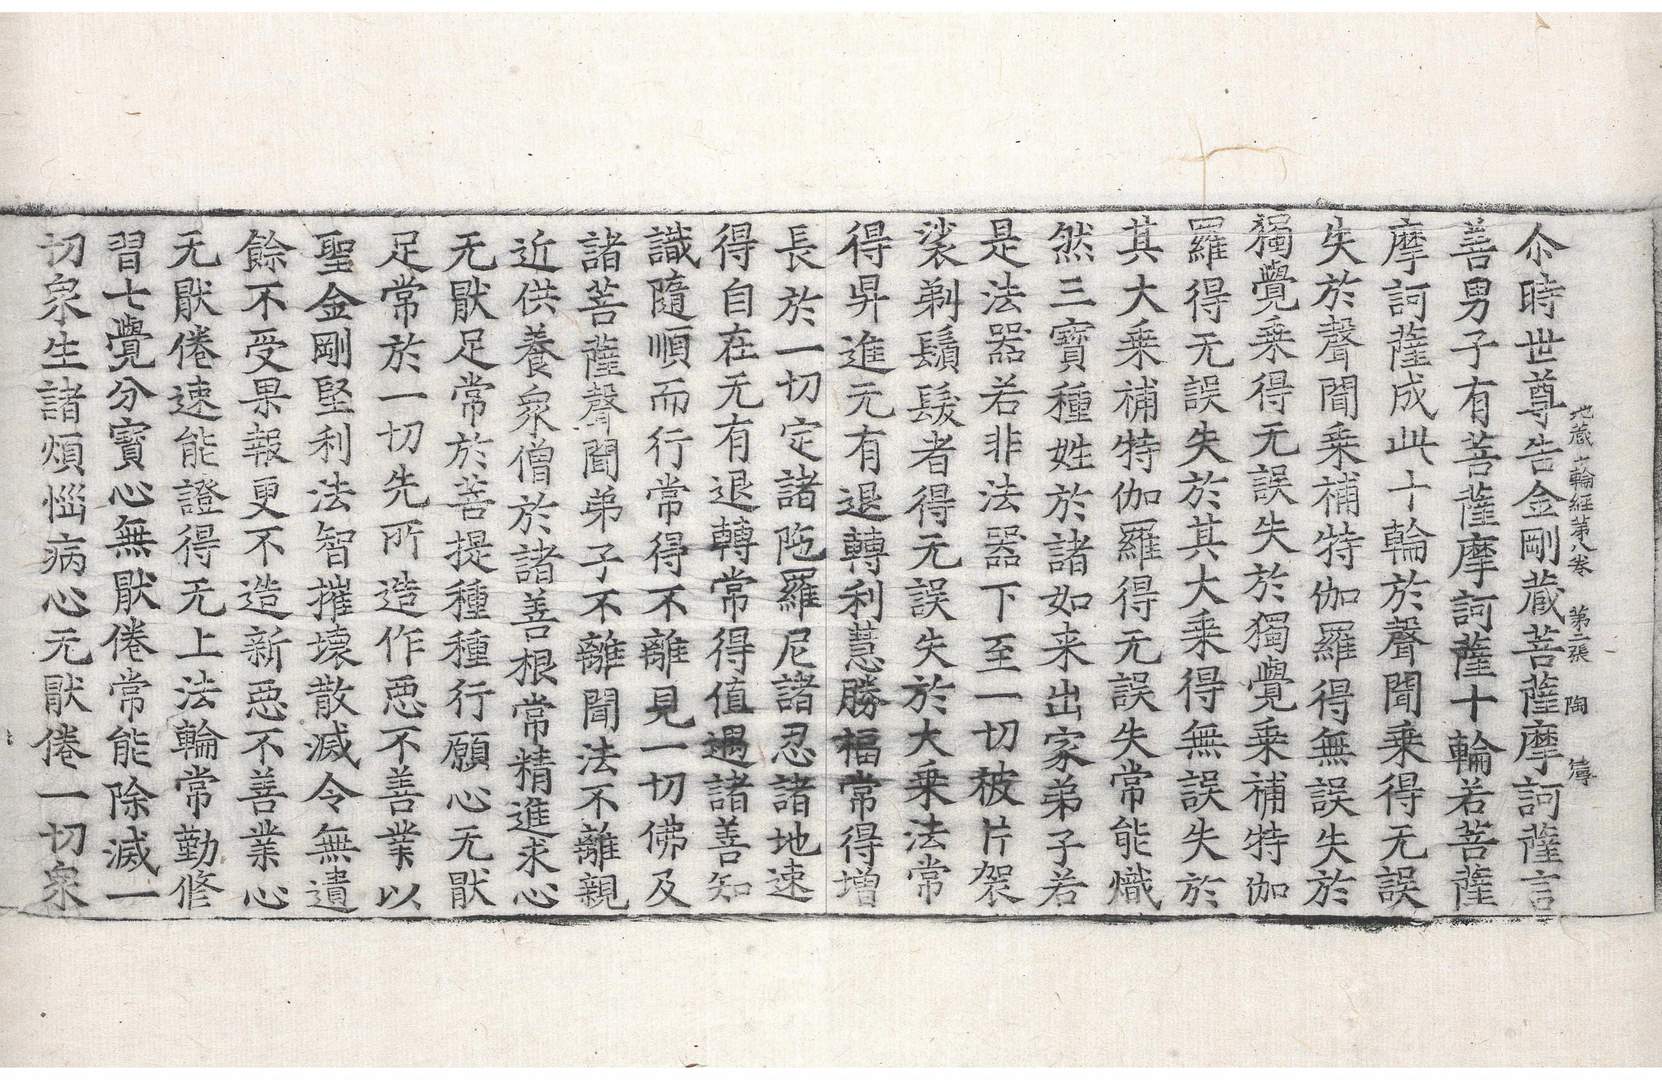 地藏十輪経苐八卷　第二張　陶　傳
尒時世尊告金剛蔵菩薩摩訶薩言
善男子有菩薩摩訶薩十輪若菩薩
摩訶薩成此十輪於聲聞乗得无誤
失於聲聞乗補特伽羅得無誤失於
獨覺乗得无誤失於獨覺乗補特伽
羅得无誤失於其大乗得無誤失於
其大乗補特伽羅得无誤失常能熾
然三寶種姓於諸如来出家弟子若
是法器若非法器下至一切被片袈
裟剃鬚髮者得无誤失於大乗法常
得昇進无有退轉利慧勝福常得增
長於一切定諸陁羅尼諸忍諸地速
得自在无有退轉常得值遇諸善知
識隨順而行常得不離見一切佛及
諸菩薩聲聞弟子不離聞法不離親
近供養衆僧於諸善根常精進求心
无猒足常於菩提種種行願心无猒
足常於一切先所造作惡不善業以
聖金剛堅利法智摧壞散滅令無遺
餘不受果報更不造新惡不善業心
无猒倦速能證得无上法輪常勤修
習七覺分寳心無猒倦常能除滅一
切衆生諸煩惱病心无猒倦一切衆